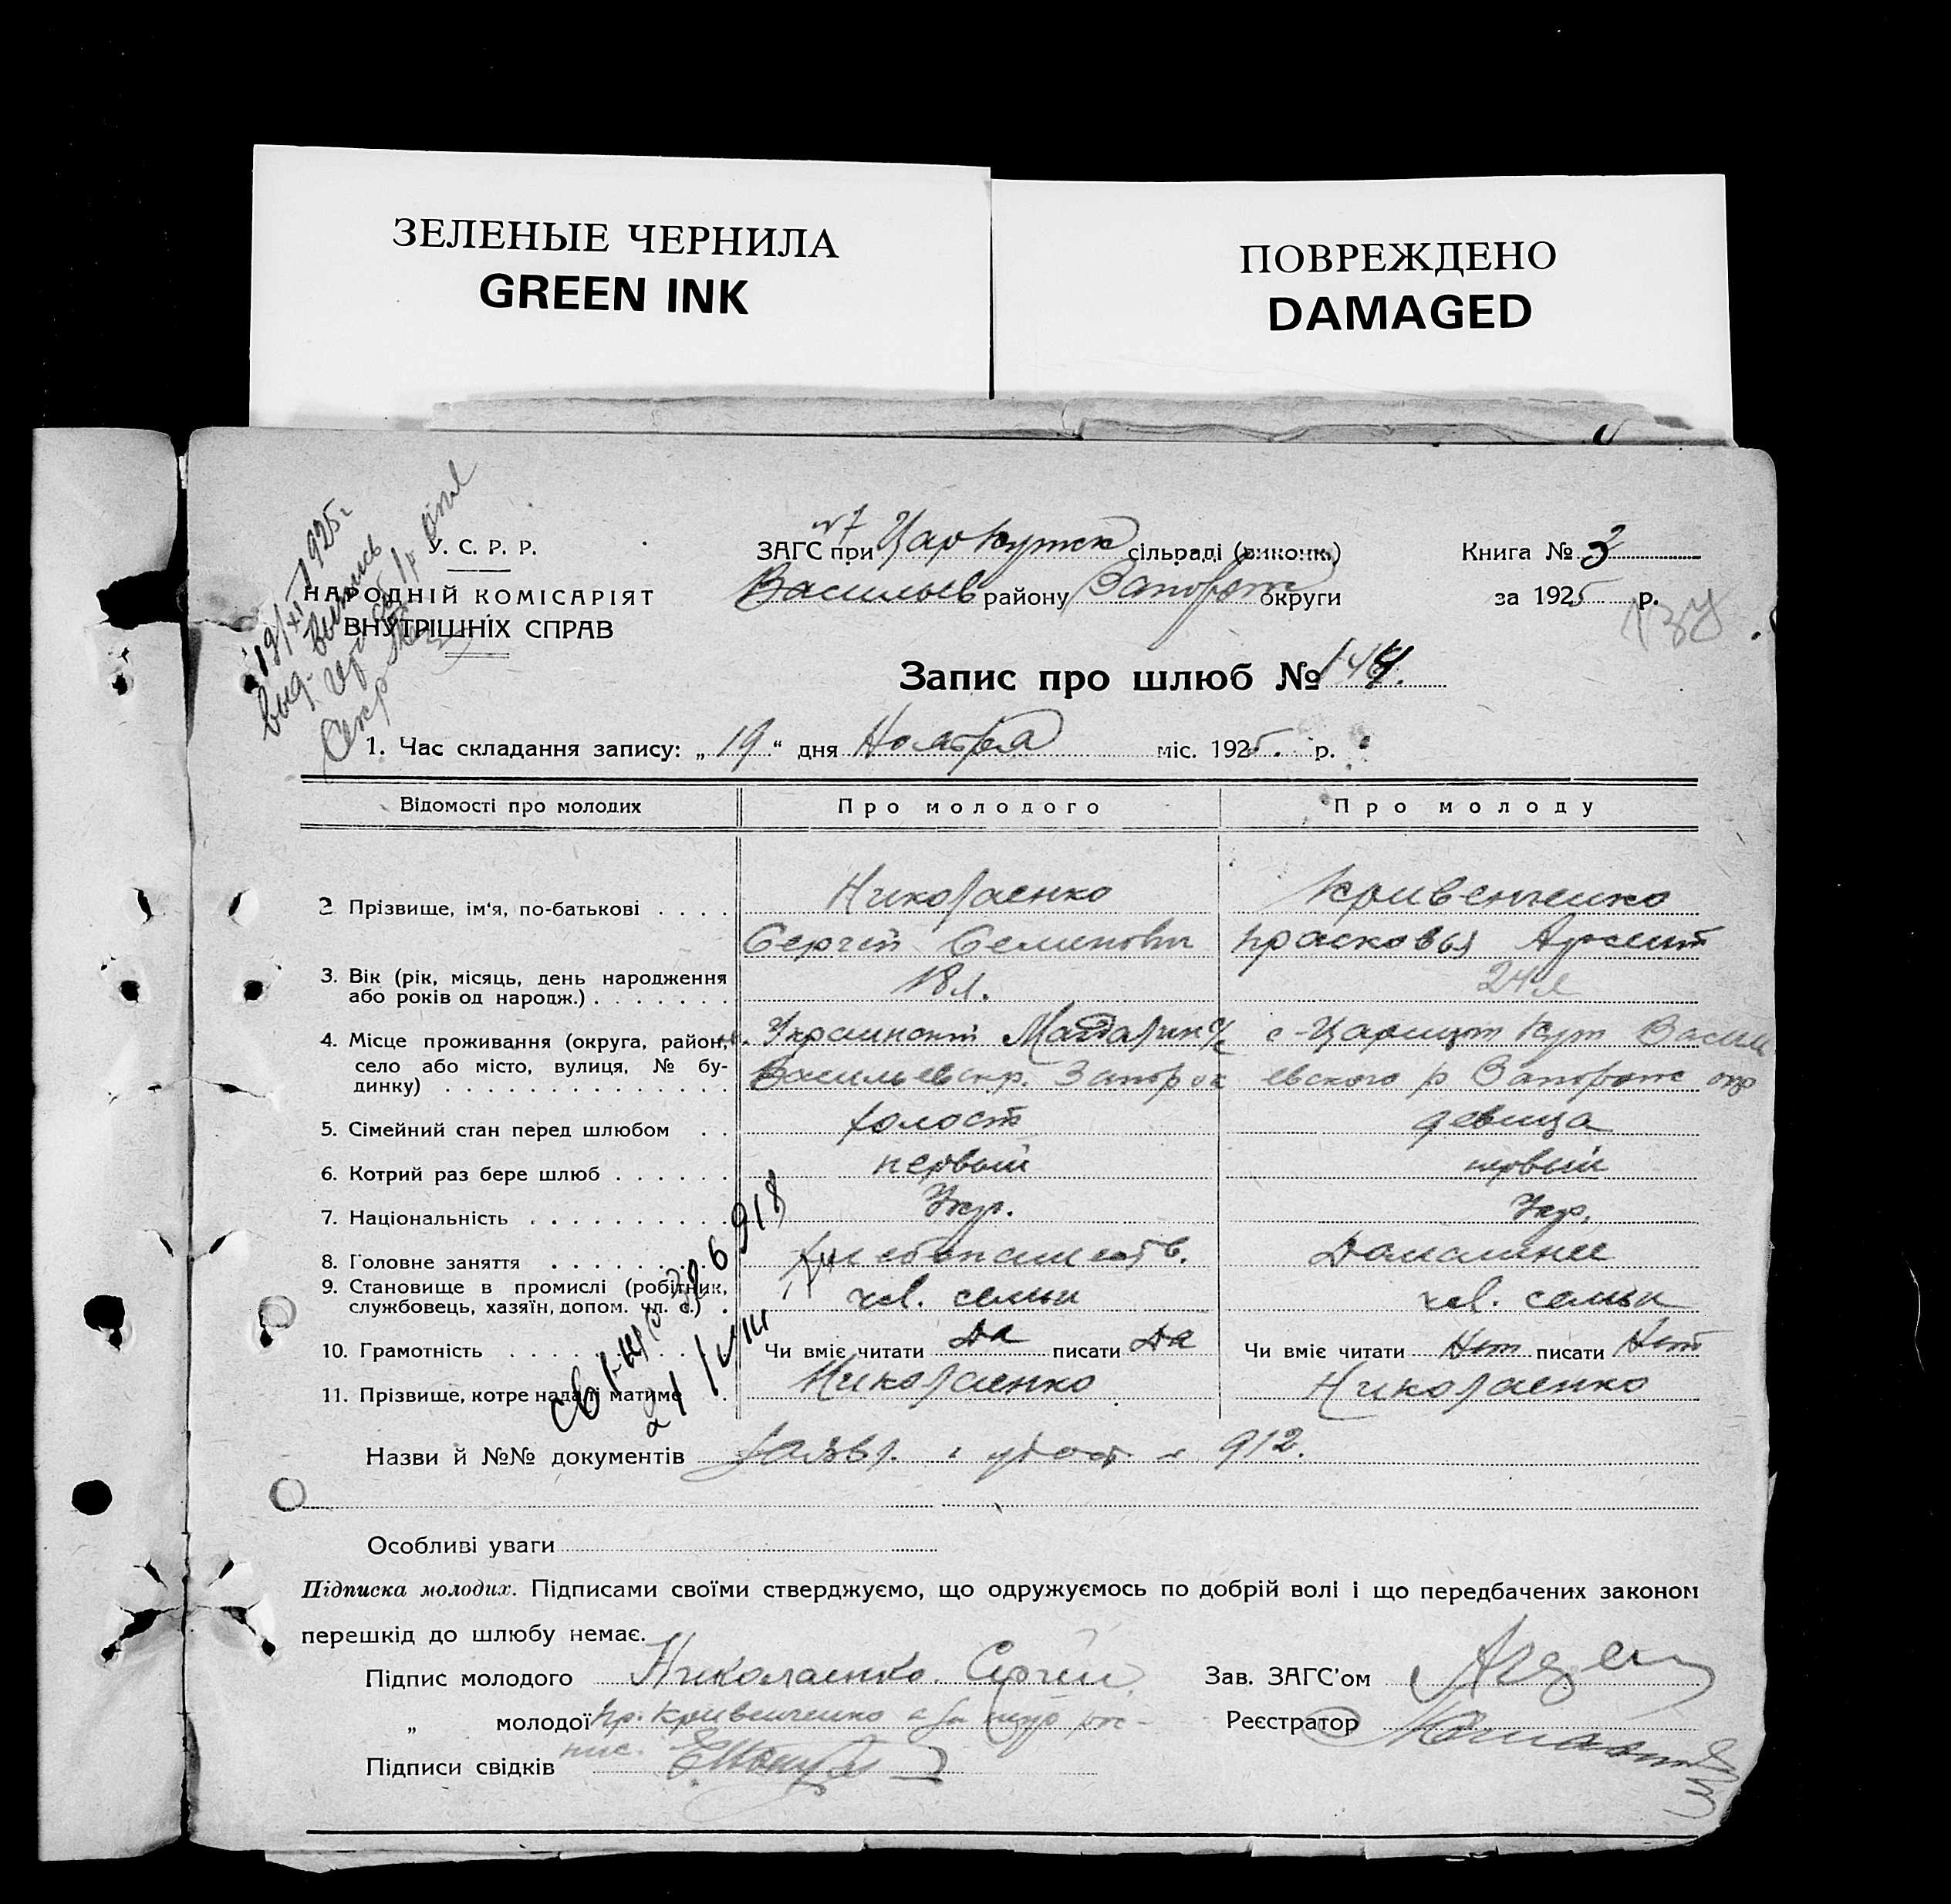 ЗЕЛЕНЫЕ ЧЕРНИЛА
GREEN INK
ПОВРЕЖДЕНО
DAMAGED
19/XI 1925г
У. С. Р. Р.
НАРОДНІЙ КОМІСАРІЯТ
ВНУТРІШНІХ СПРАВ
ЗАГС при ЦарКутск сільраді (виконк.)
Васильев району Запорож округи
Книга № 3
за 1925 р.
Запис про шлюб № 144.
1. Час складання запису: „19“ дня Ноября міс. 1925. р.
Відомості про молодих Про молодого Про молоду
2 Прізвище, ім'я, по-батькові . . . . Николаенко Кривенченко
Сергей Семенович Прасковья Арсент
3. Вік (рік, місяць, день народження 18 л. 24 л
або років од народж.) . . . . . . .
4. Місце проживання (округа, район, Украинский с-Царицын Кут Васил
село або місто, вулиця, № бу- Васильевск р. Запорож евского р Запорож окр
динку) . . . . . . . . . . . . . . .
5. Сімейний стан перед шлюбом . . холост девица
6. Котрий раз бере шлюб . . . . . . первый первый
7. Національність . . . . . . . . . . Укр. Укр.
8. Головне заняття . . . . . . . . . хлебопашеств. Домашнее
9. Становище в промислі (робітник, чл. семьи чл. семьи
службовець, хазяїн, допом. чл. с.) .
10. Грамотність . . . . . . . . . . . Чи вміє читати Да писати Да Чи вміє читати Нет писати Нет
11. Прізвище, котре надалі матиме . Николаенко Николаенко
Назви й №№ документів Заявл. и удост. № 912.
Особливі уваги
Підписка молодих. Підписами своїми стверджуємо, що одружуємось по добрій волі і що передбачених законом
перешкід до шлюбу немає.
Підпис молодого Николаенко Сергей Зав. ЗАГС'ом
„ молодої Пр. Кривенченко а за неую рос- Реєстратор
пис.
Підписи свідків